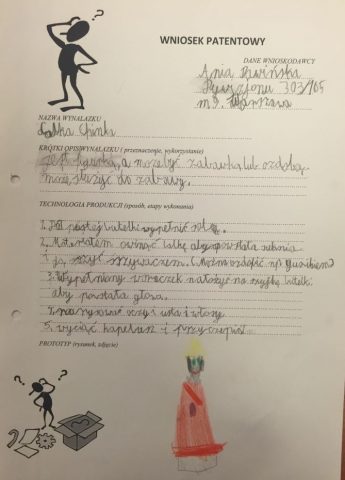 WNIOSEK PATENTOWY
DANE WNIOSKODAWCY
Ania
303/105
m 9. Warszawa
NAZWA WYNALAZKU
Lalka
KRÓTKI OPIS WYNALAZKU ( przeznaczenie, wykorzystanie)
jest a może być zabawką lub ozdobą.
może służyć do zabawy.
TECHNOLOGIA PRODUKCJI (sposób, etapy wykonania)
1. pustej butelki wypełnić
2. Materiałem owinąć lalkę aby powstała suknia
i ją zszyć zszywaczem. (Można ozdobić np guzikiem)
3. Wypełniony woreczek nałożyć na szyjkę butelki
aby powstała głowa.
4. narysować oczy usta i włosy.
5. wyciąć kapelusz i przyczepić.
PROTOTYP (rysunek, zdjęcie)